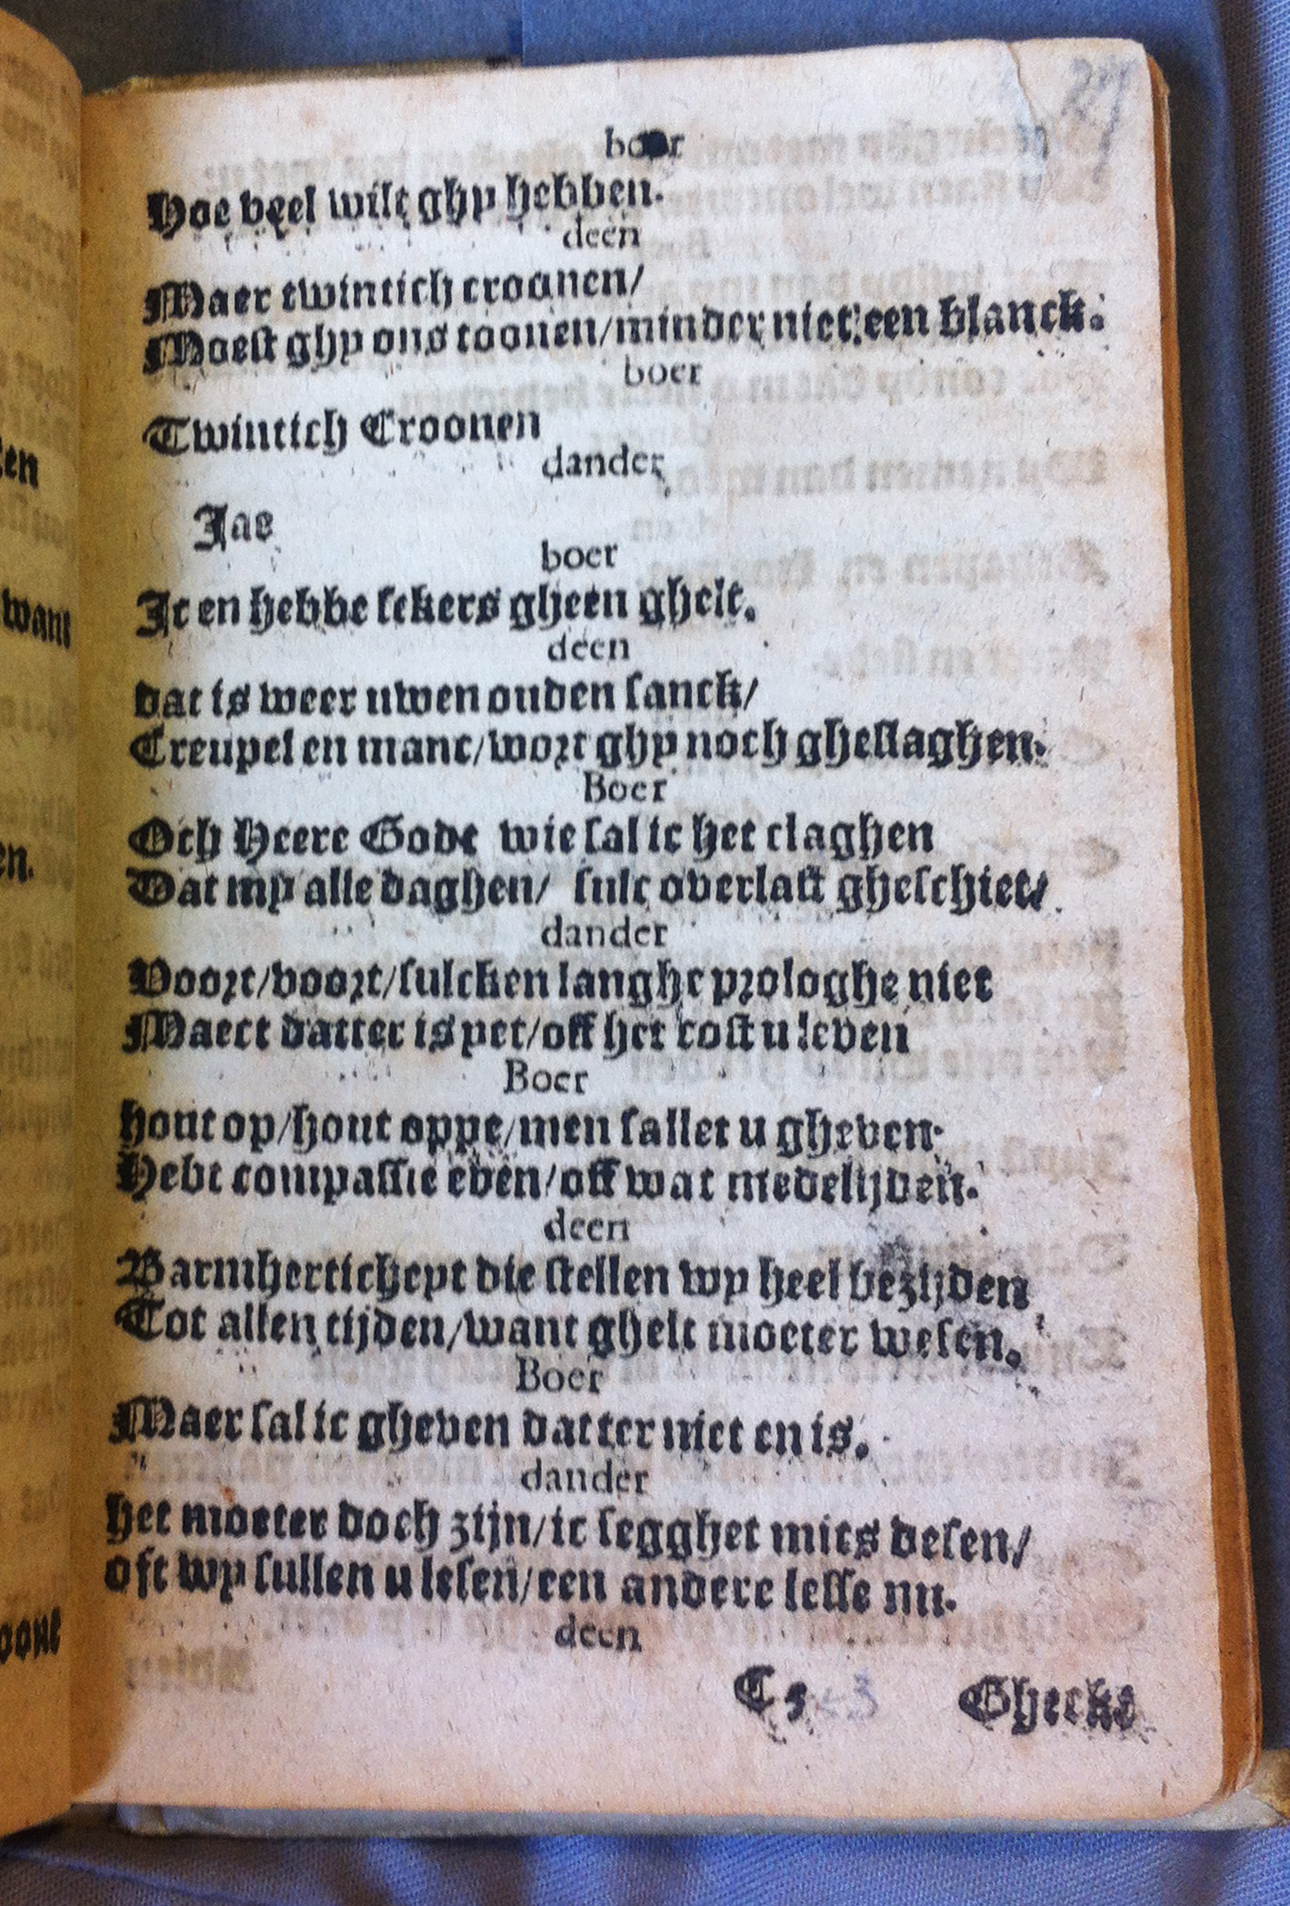 27
boer
Hoe veel wilt ghy hebben.
deen
Maer twintich croonen/
Moest ghy ons toonen/minder niet een blanck.
boer
Twintich Croonen
dander
Jae
boer
Jc en hebbe sekers gheen ghelt.
deen
dat is weer uwen ouden sanck/
Creupel en manc/wort ghy noch gheslaghen.
Boer
Och Heere Godt wie sal ic het claghen
Dat my alle daghen/ sulc overlast gheschiet/
dander
Voort/voort/sulcken langhe prologhe niet
Maect datter is yet/oft het cost u leven
Boer
hout op/hout oppe/men sallet u gheven.
Hebt compassie even/oft wat medelijden.
deen
Barmherticheyt die stellen wy heel bezijden
Tot allen tijden/want ghelt moeter wesen.
Boer
Maer sal ic gheven datter niet en is.
dander
het moeter doch zijn/ic segghet mits desen/
oft wy sullen u lesen/een andere lesse nu.
deen
C 5 3 Ghecks
en
want
en.
oone